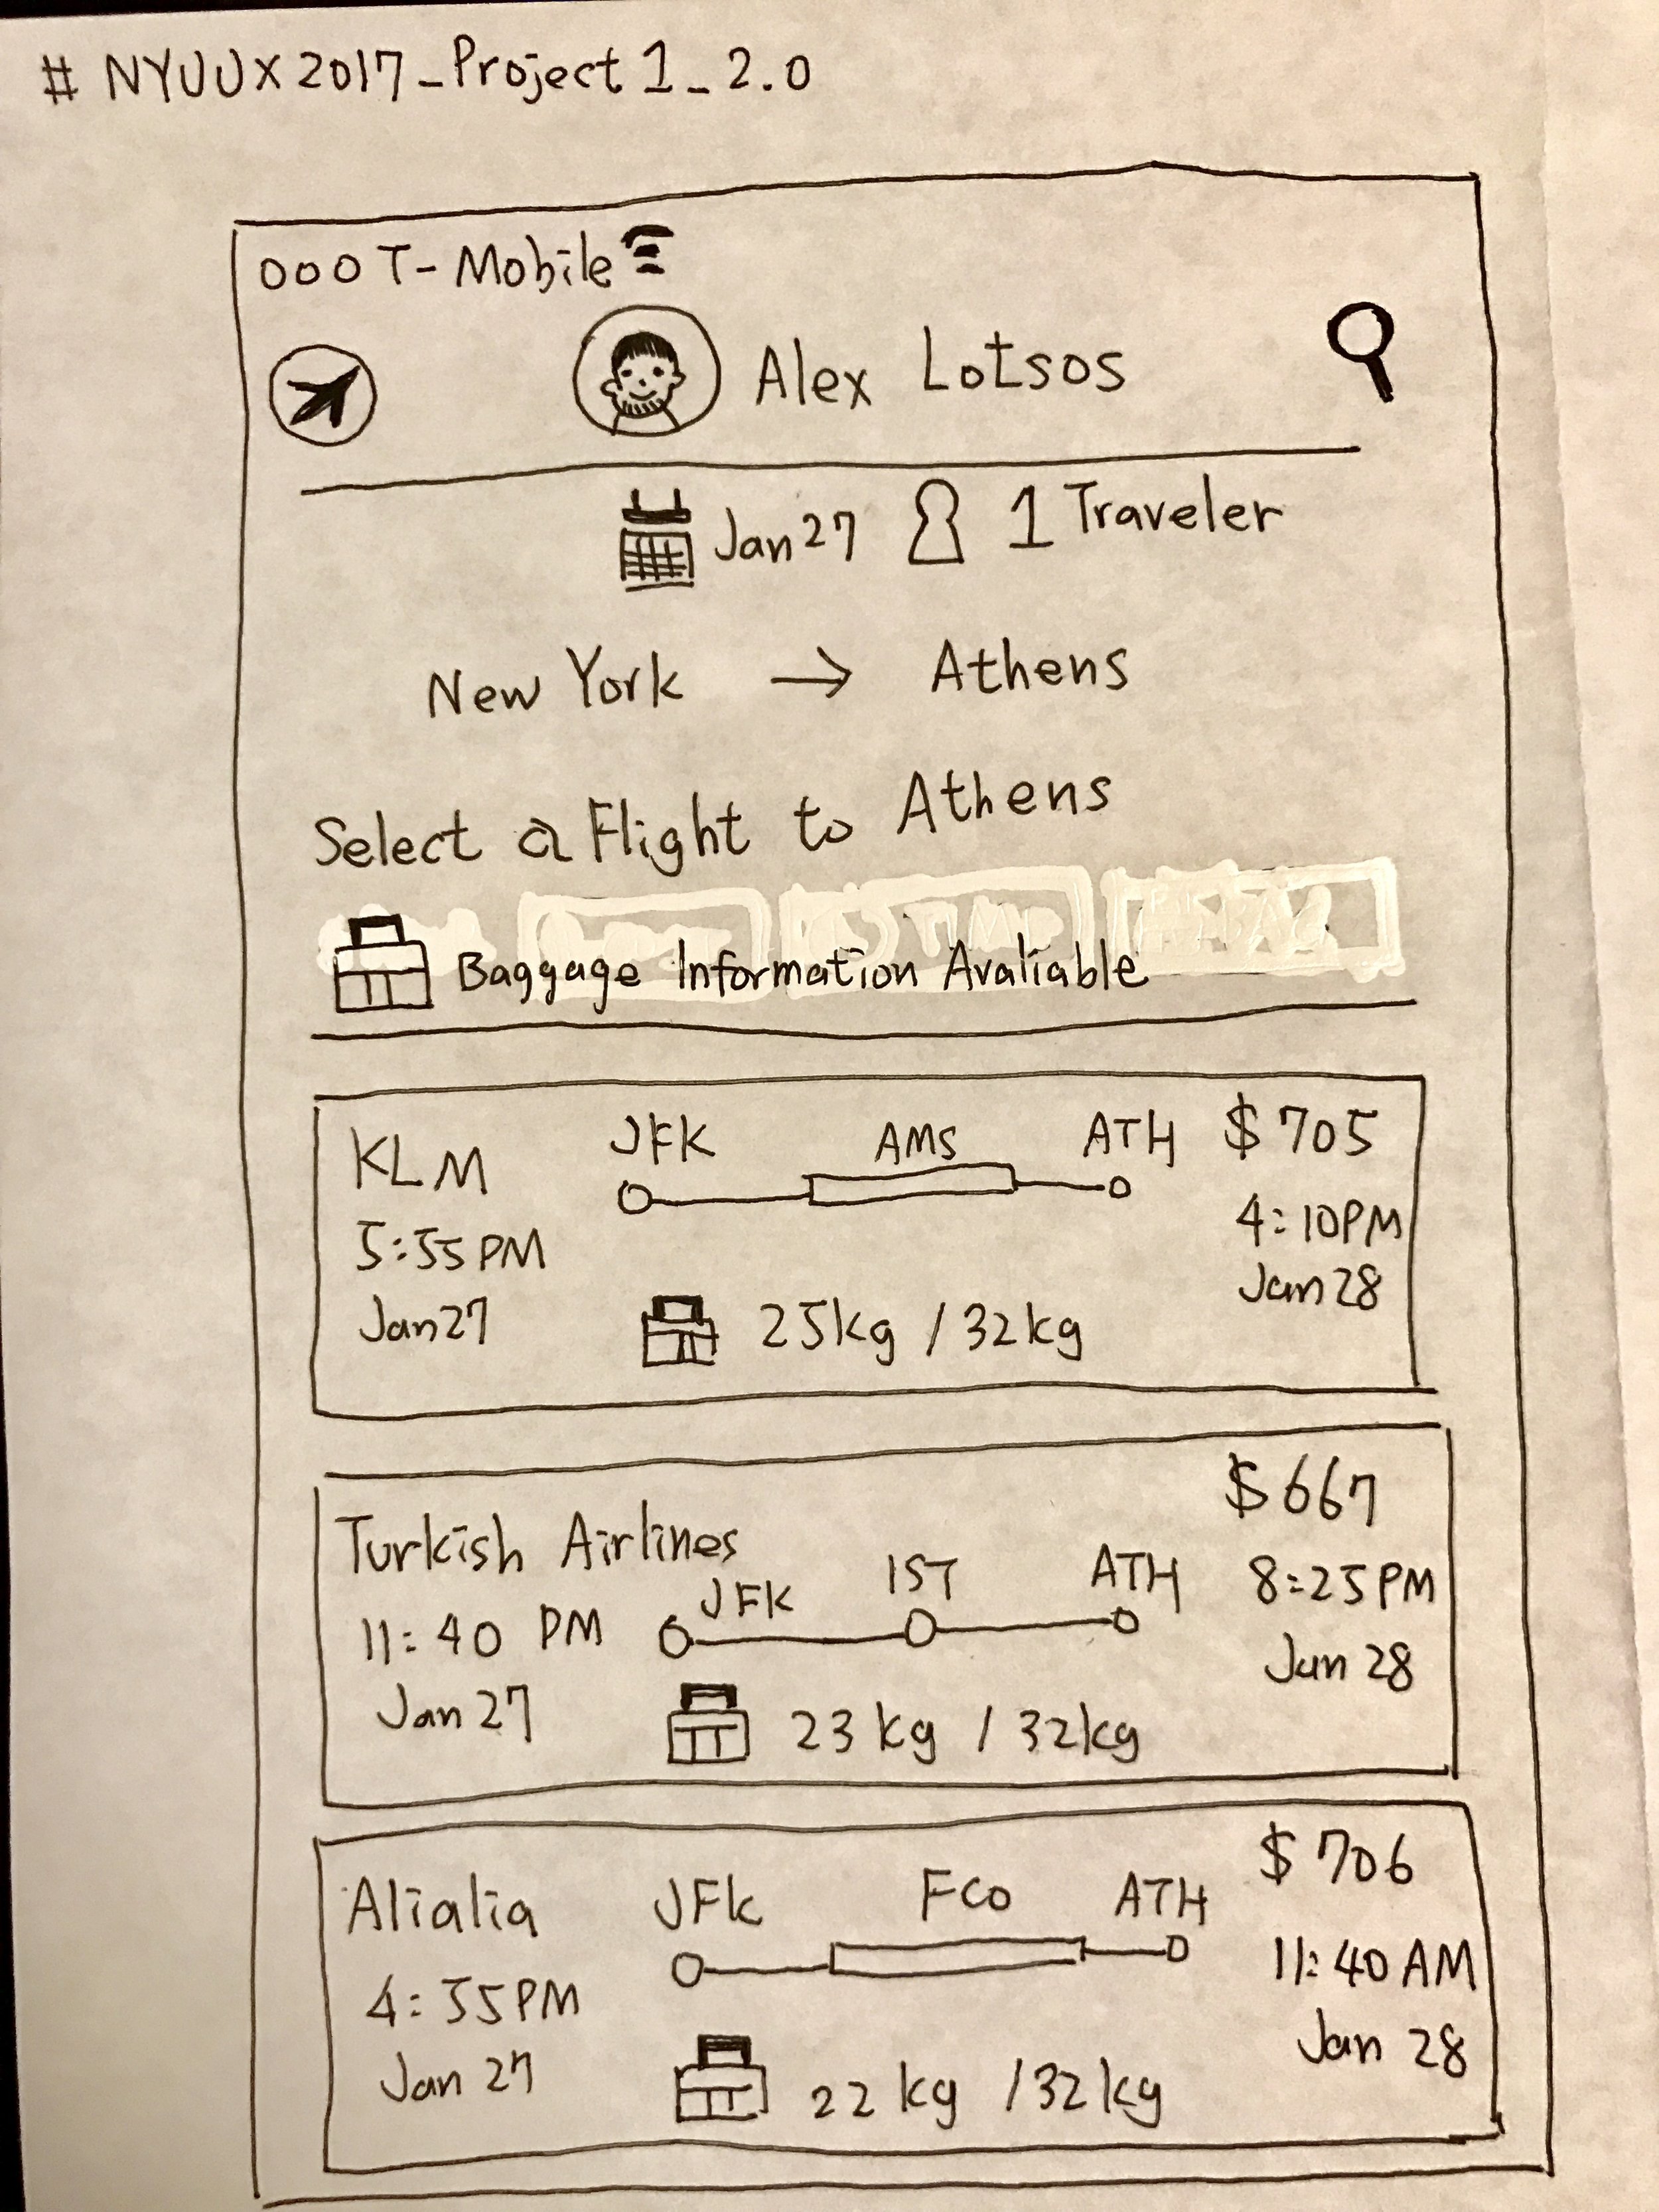 # NYUUX2017_Project 1_2.0
ooo T-Mobile
Alex Lotsos
Jan 27 1 Traveler
New York → Athens
Select a Flight to Athens
Baggage Information Avaliable
KLM JFK AMS ATH $705
5:55PM 4:10PM
Jan 27 Jan 28
25kg / 32kg
$667
Turkish Airlines
JFK IST ATH 8:25PM
11:40 PM
Jan 27 Jan 28
23kg / 32kg
$706
Alialia JFK FCO ATH
4:55PM 11:40 AM
Jan 27 Jan 28
22kg / 32kg